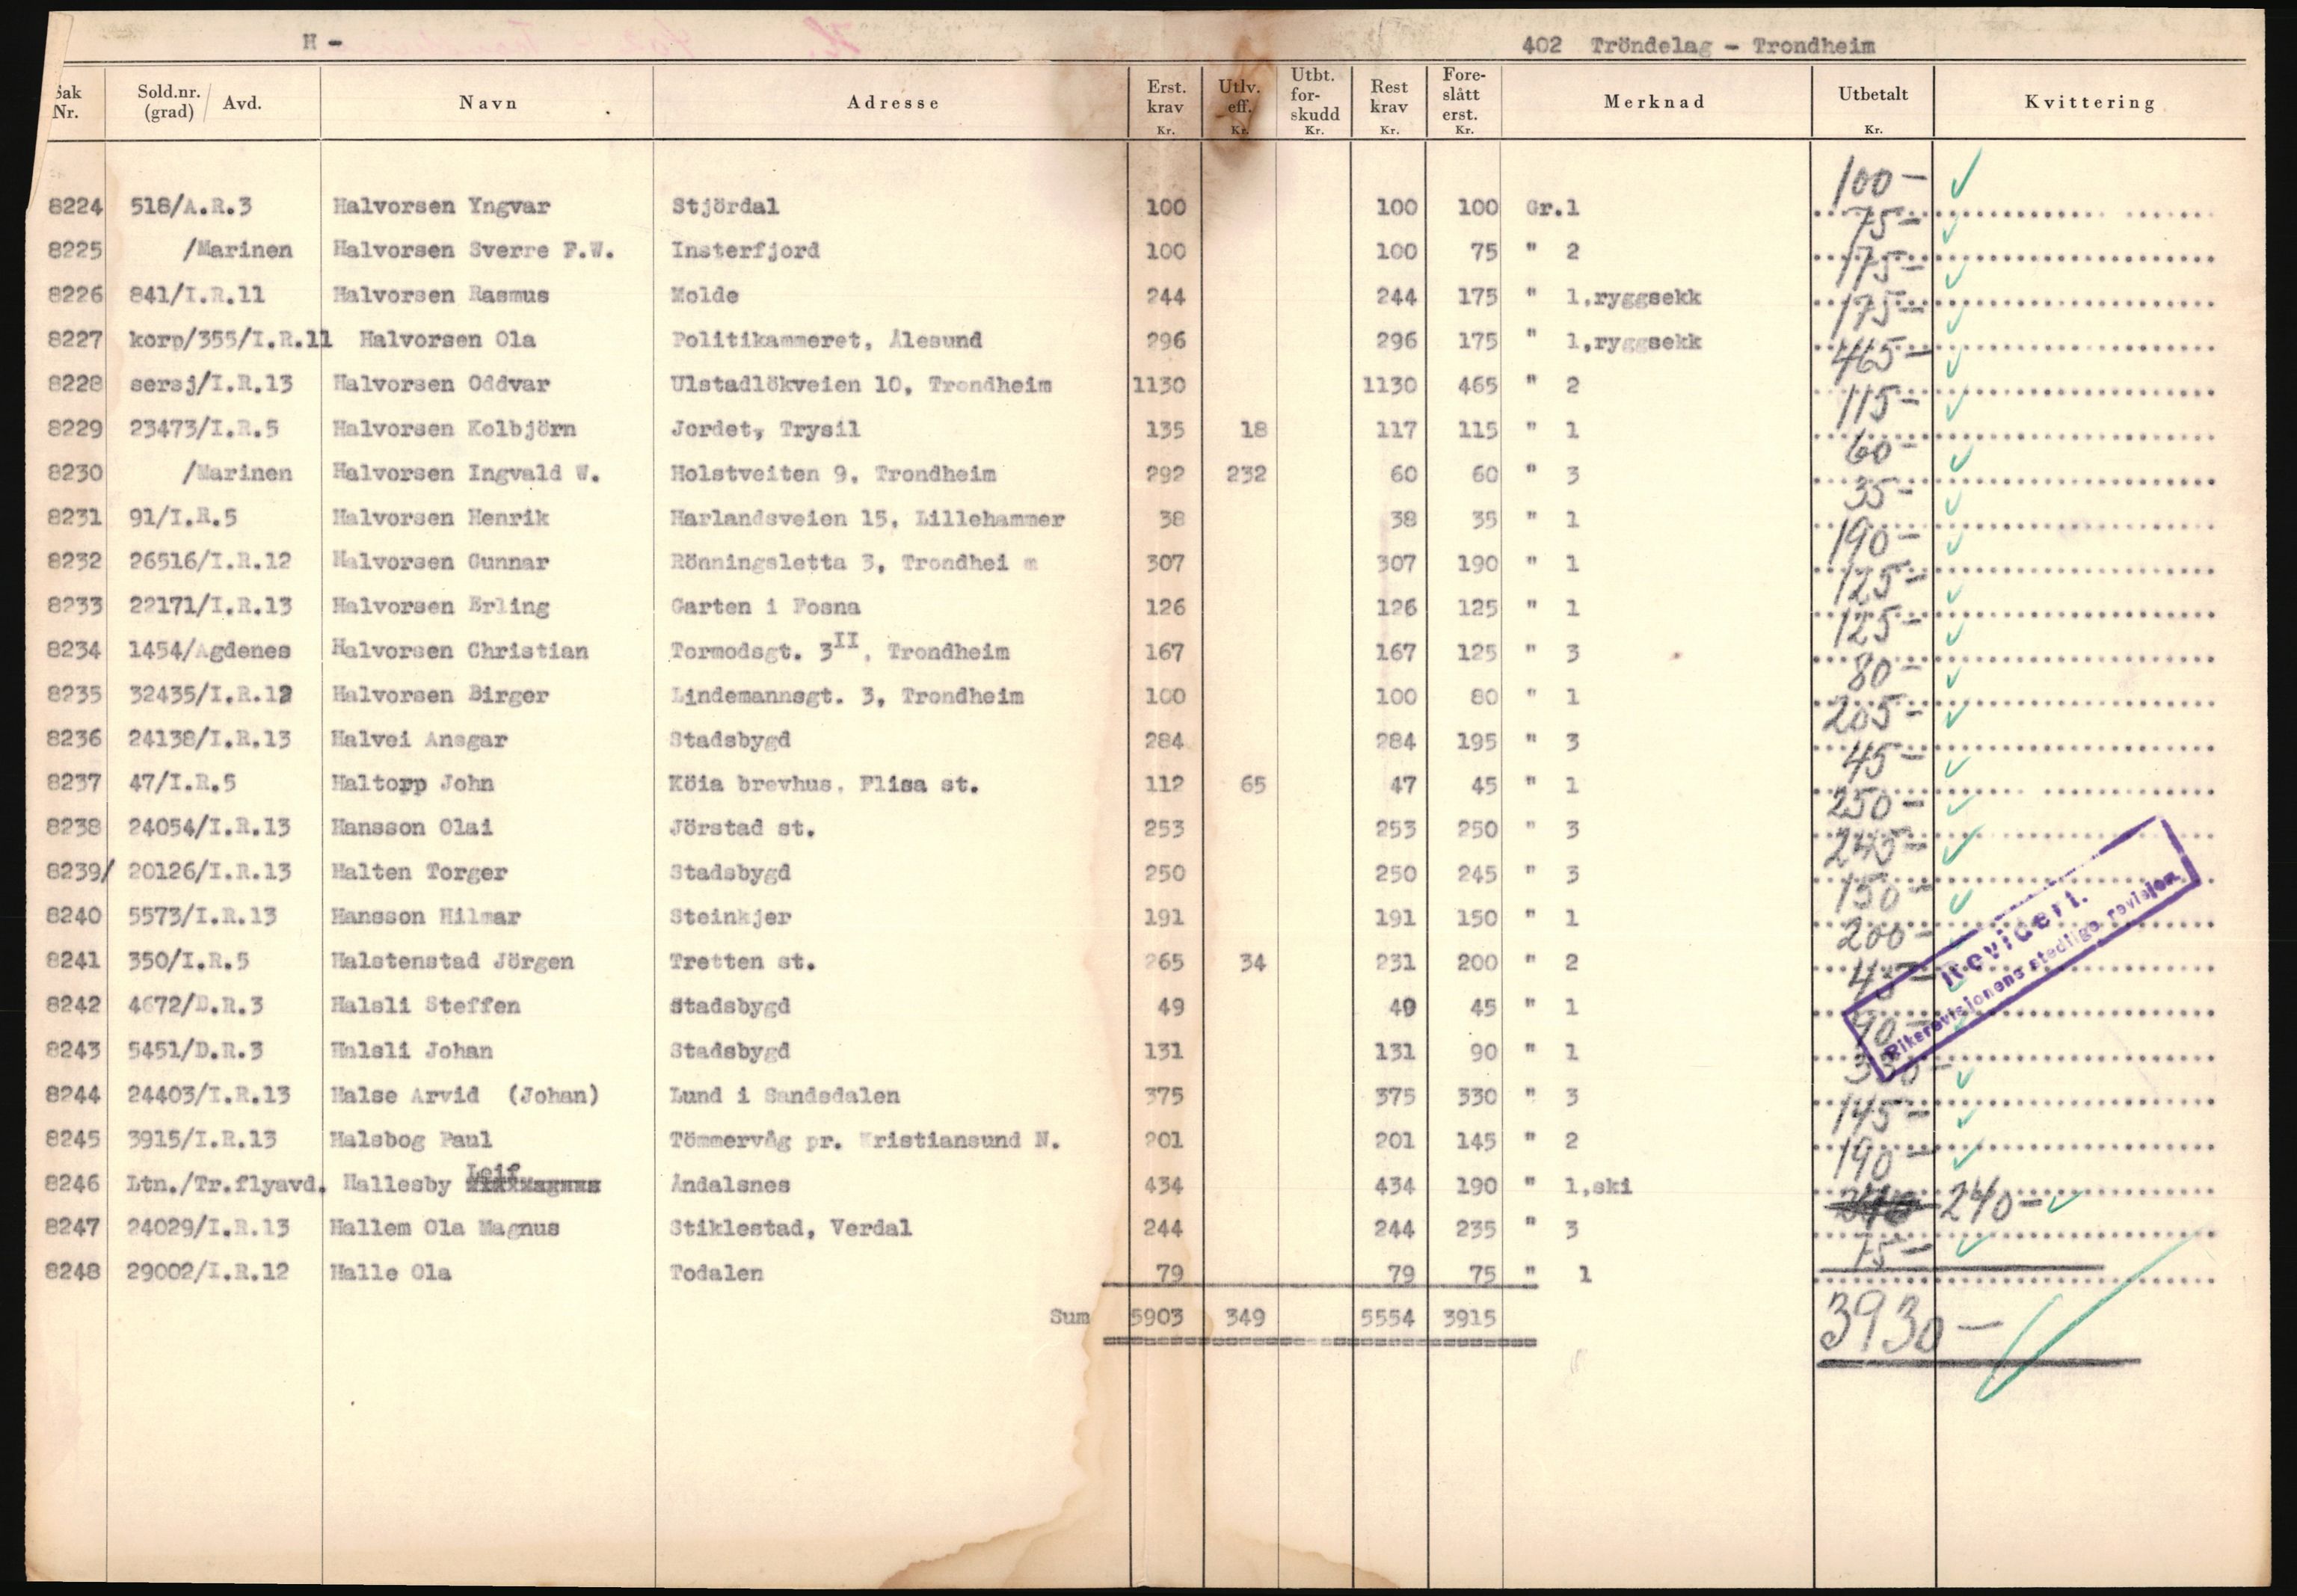 H - 402 Tröndelag - Trondheim
Sak Nr. Sold.nr. (grad) / Avd. Navn Adresse Erst. krav Kr. Utlv. eff. Kr. Utbt. for- skudd Kr. Rest krav Kr. Fore- slått erst. Kr. Merknad Utbetalt Kr. Kvittering
8224 518/A.R.3 Halvorsen Yngvar Stjördal 100 100 100 Gr.1 100-
8225 /Marinen Halvorsen Sverre F.W. Insterfjord 100 100 75 " 2 75-
8226 841/I.R.11 Halvorsen Rasmus Molde 244 244 175 " 1,ryggsekk 175-
8227 korp/355/I.R.11 Halvorsen Ola Politikammeret, Ålesund 296 296 175 " 1,ryggsekk 175-
8228 sersj/I.R.13 Halvorsen Oddvar Ulstadlökveien 10, Trondheim 1130 1130 465 " 2 465-
8229 23473/I.R.5 Halvorsen Kolbjörn Jordet, Trysil 135 18 117 115 " 1 115-
8230 /Marinen Halvorsen Ingvald W. Holstveiten 9, Trondheim 292 232 60 60 " 3 60-
8231 91/I.R.5 Halvorsen Henrik Harlandsveien 15, Lillehammer 38 38 35 " 1 35-
8232 26516/I.R.12 Halvorsen Gunnar Rönningsletta 3, Trondhei m 307 307 190 " 1 190-
8233 22171/I.R.13 Halvorsen Erling Garten i Fosna 126 126 125 " 1 125-
8234 1454/Agdenes Halvorsen Christian Tormodsgt. 3II, Trondheim 167 167 125 " 3 125-
8235 32435/I.R.12 Halvorsen Birger Lindemannsgt. 3, Trondheim 100 100 80 " 1 80-
8236 24138/I.R.13 Halvei Ansgar Stadsbygd 284 284 195 " 3 205-
8237 47/I.R.5 Haltorp John Köia brevhus, Flisa st. 112 65 47 45 " 1 45-
8238 24054/I.R.13 Hansson Olai Jörstad st. 253 253 250 " 3 250-
8239/ 20126/I.R.13 Halten Torger Stadsbygd 250 250 245 " 3 245-
8240 5573/I.R.13 Hansson Hilmar Steinkjer 191 191 150 " 1 150-
8241 350/I.R.5 Halstenstad Jörgen Tretten st. 265 34 231 200 " 2 200-
8242 4672/D.R.3 Halsli Steffen Stadsbygd 49 49 45 " 1 45-
8243 5451/D.R.3 Halsli Johan Stadsbygd 131 131 90 " 1 90-
8244 24403/I.R.13 Halse Arvid (Johan) Lund i Sandsdalen 375 375 330 " 3 330-
8245 3915/I.R.13 Halsbog Paul Tömmervåg pr. Kristiansund N. 201 201 145 " 2 145-
8246 Ltn./Tr.flyavd. Hallesby Leif Åndalsnes 434 434 190 " 1,ski 190-
8247 24029/I.R.13 Hallem Ola Magnus Stiklestad, Verdal 244 244 235 " 3 240 240-
8248 29002/I.R.12 Halle Ola Todalen 79 79 75 " 1 75-
Sum 5903 349 5554 3915 3930-
Revidert.
Riksrevisjonens stedlige revisjon